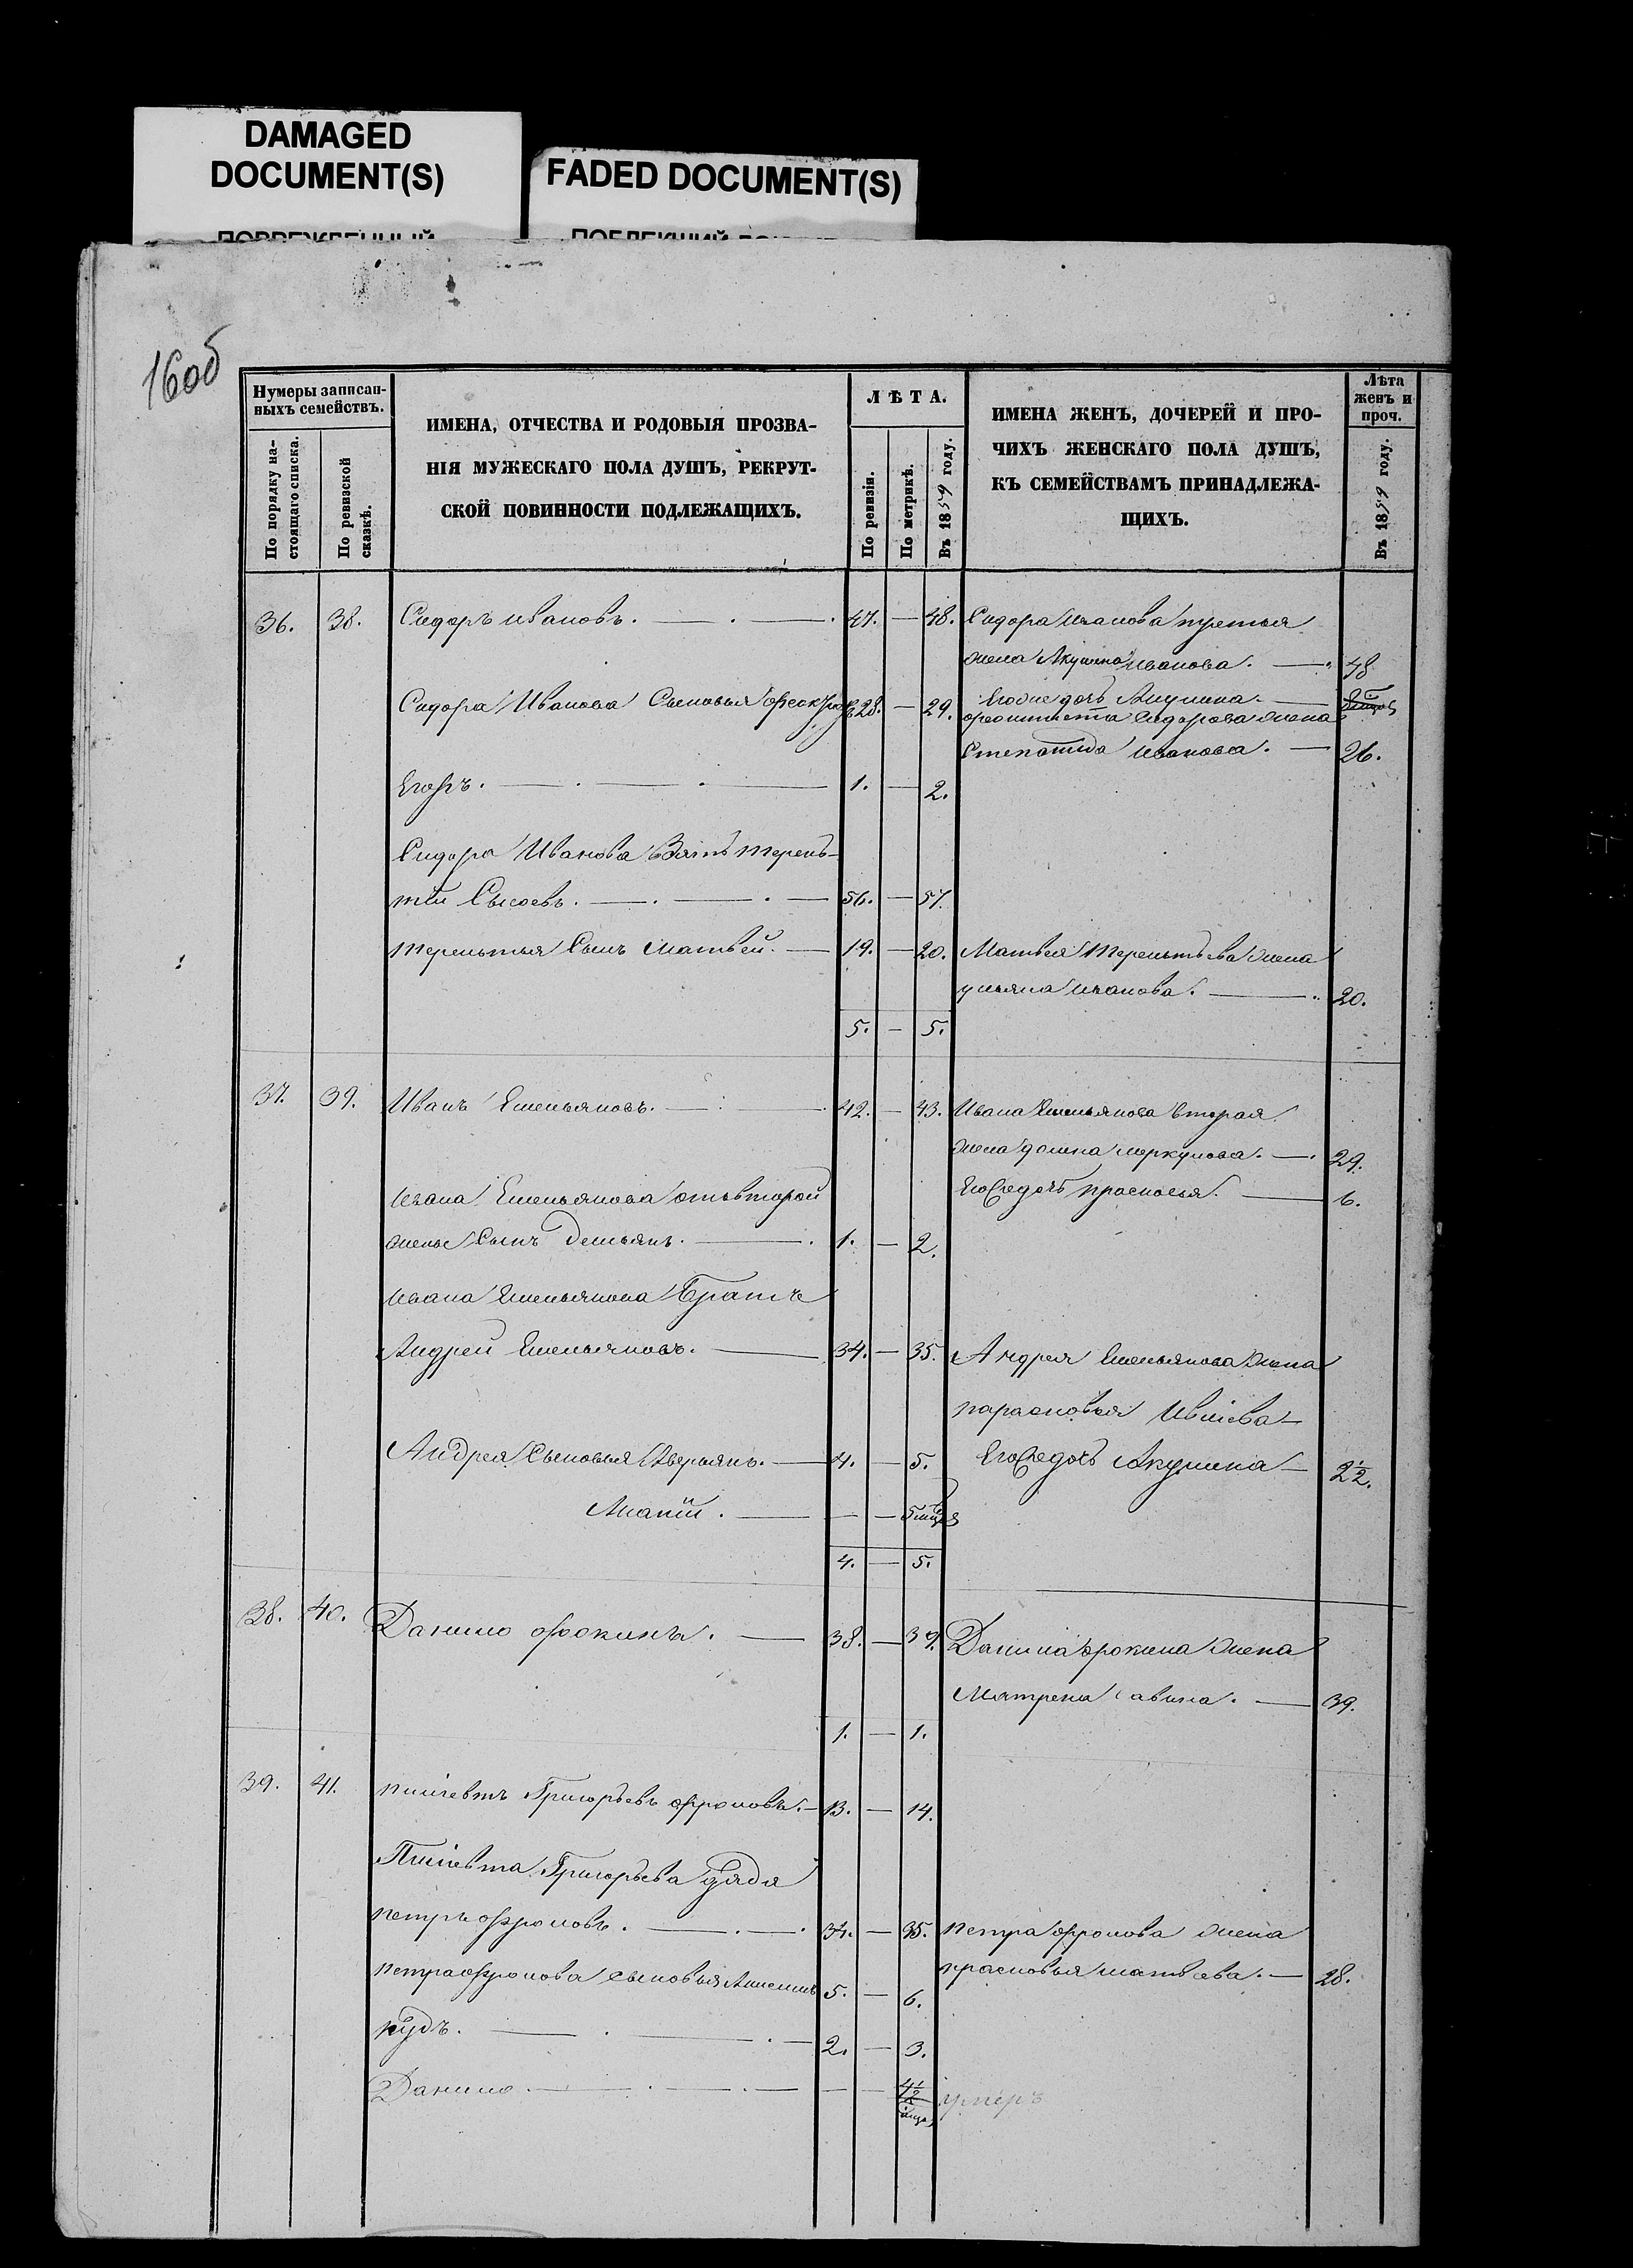 DAMAGED
DOCUMENT(S)
FADED DOCUMENT(S)
16об
Нумеры записан-
ныхъ семействъ.
По порядку на-
стоящаго списка.
По ревизской
сказкѣ.
ИМЕНА, ОТЧЕСТВА И РОДОВЫЯ ПРОЗВА-
НІЯ МУЖЕСКАГО ПОЛА ДУШЪ, РЕКРУТ-
СКОЙ ПОВИННОСТИ ПОДЛЕЖАЩИХЪ.
ЛѢТА.
По ревизіи.
По метрикѣ.
Въ 1859 году.
ИМЕНА ЖЕНЪ, ДОЧЕРЕЙ И ПРО-
ЧИХЪ ЖЕНСКАГО ПОЛА ДУШЪ,
КЪ СЕМЕЙСТВАМЪ ПРИНАДЛЕЖА-
ЩИХЪ.
Лѣта
женъ и
проч.
Въ 1859 году.
36. 38. Сидоръ Ивановъ. 47. — 48. Сидора Иванова третья
жена Акулина Иванова. 48
Сидора Иванова Сыновья 28. — 29. Его дочь Акулина.
Сидорова жена
Степанида Иванова. — 26.
Егоръ. 1. — 2.
Сидора Иванова Зять терень-
тiй Сысоевъ. 56. — 57.
терентья Сынъ Матвей. — 19. — 20. Матвея Терентьева жена
ульяна Иванова. 20.
5. — 5.
37. 39. Иванъ Емельяновъ. 42. — 43. Ивана Емельянова вторая
жена домна меркулова. — 29.
Ивана Емельянова отъ второй
Его дочь прасковья. 6.
жены Сынъ Демьянъ. 1. — 2.
Ивана Емельянова Братъ
Андрей Емельяновъ. 34. — 35. Андрея Емельянова жена
парасковья
Андрея Сыновья Аверьянъ. — 4. — 5. Его дочь Акулина — 2 1/2.
Ананiй. — — 5 мцов
4. — 5.
38. 40. Данило фокинъ. — 38. — 39. Данила фокина жена
Матрена Савина. — 39.
1. — 1.
39. 41. Григорьевъ фроловъ. — 13. — 14.
Григорьева дядя
петръ фроловъ. 34. — 35. петра фролова жена
прасковья матвева. — 28.
петра фролова сыновья 5. — 6.
2. — 3.
Данило. — — 4 1/2 умеръ